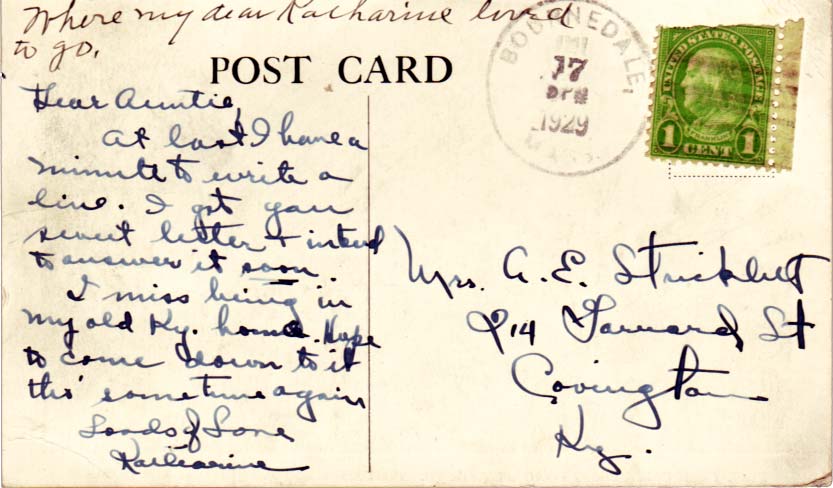 Where my dear Katharine loved
to go.
POST CARD
BOURNEDALE,
17
PM
1929
MASS.
UNITED STATES POSTAGE
FRANKLIN
1 CENT 1
Dear Auntie,
At last I have a
minute to write a
line. I got your
sweet letter + intend
to answer it soon.
I miss being in
my old Ky. home. Hope
to come down to it
tho' sometime again
Loads of Love
Katharine
Mrs. A. E. Stricklett
914 St
Covington
Ky.